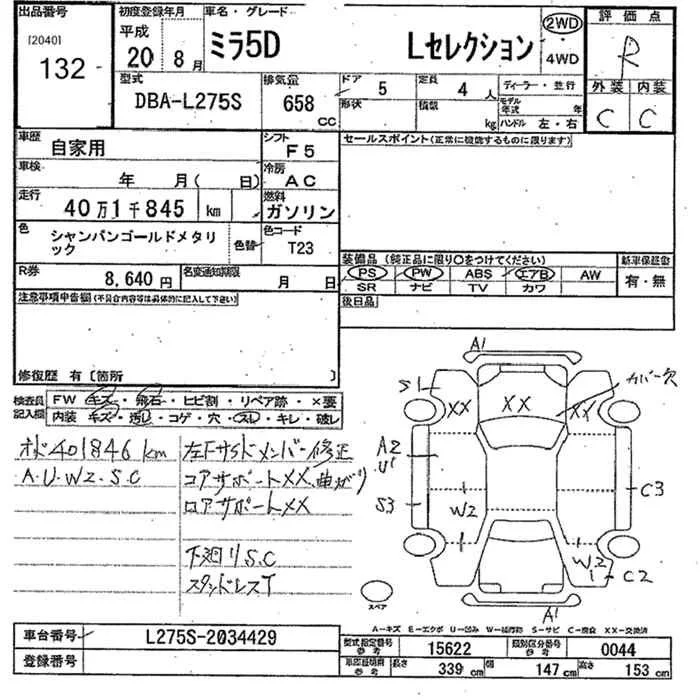 出品番号 初度登録年月 車名・グレード 評価点
[2040] 平成 ミラ5D Lセレクション 2WD R
132 20 8月 4WD
型式 排気量 ドア 5 定員 4人 ディーラー・並行 外装 内装
DBA-L275S 658cc 形状 積載 kg モデル年式 年 C C
ハンドル 左・右
車歴 自家用 シフト F5 セールスポイント(正常に機能するものに限ります)
車検 年 月( 日) 冷房 AC
走行 40万1千845 km 燃料 ガソリン
色 シャンパンゴールドメタリック 色替 色コード T23
装備品(純正品に限り○をつけてください) 新車保証書
R券 8,640円 名変通知期限 月 日 PS PW ABS エアB AW 有・無
SR ナビ TV カワ
注意事項申告欄(不具合内容等は具体的に記入して下さい) 後日品
修復歴 有〔箇所
検査員記入欄 FW キズ・飛石・ヒビ割・リペア跡・×要
内装 キズ・汚し・コゲ・穴・スレ・キレ・破レ
オド401846km 左Fサイドメンバー修正
A.U.W2.S.C コアサポートXX,曲がり
ロアサポートXX
下廻りS.C
スタッドレスT
A1
S1 カバー欠
XX XX XX
A2
U1
S3 W2 C3
W2
C2
A1
スペア
A-キズ E-エクボ U-凹み W-補修跡 S-サビ C-腐食 XX-交換済
車台番号 L275S-2034429 型式指定番号 参考 15622 類別区分番号 参考 0044
登録番号 車庫証明書 参考 長さ 339cm 幅 147cm 高さ 153cm